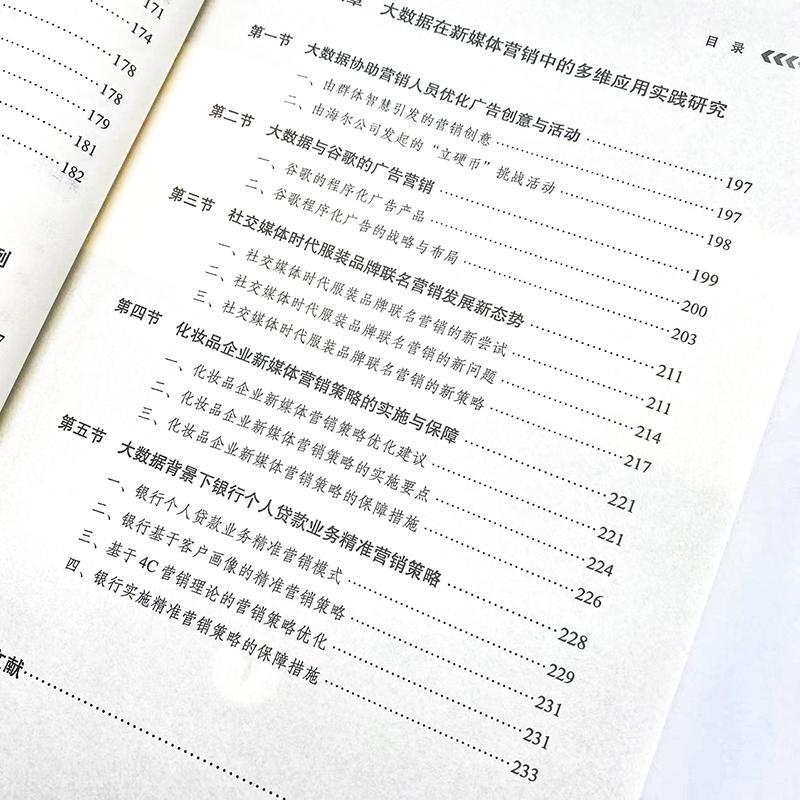 171
174
178
178
179
181
182
目 录
章 大数据在新媒体营销中的多维应用实践研究
第一节 大数据协助营销人员优化广告创意与活动 ……… 197
一、由群体智慧引发的营销创意 ……… 197
二、由海尔公司发起的“立硬币”挑战活动 ……… 198
第二节 大数据与谷歌的广告营销 ……… 199
一、谷歌的程序化广告产品 ……… 200
二、谷歌程序化广告的战略与布局 ……… 203
第三节 社交媒体时代服装品牌联名营销发展新态势 ……… 211
一、社交媒体时代服装品牌联名营销的新尝试 ……… 211
二、社交媒体时代服装品牌联名营销的新问题 ……… 214
三、社交媒体时代服装品牌联名营销的新策略 ……… 217
第四节 化妆品企业新媒体营销策略的实施与保障 ……… 221
一、化妆品企业新媒体营销策略优化建议 ……… 221
二、化妆品企业新媒体营销策略的实施要点 ……… 224
三、化妆品企业新媒体营销策略的保障措施 ……… 226
第五节 大数据背景下银行个人贷款业务精准营销策略 ……… 228
一、银行个人贷款业务精准营销模式 ……… 229
二、银行基于客户画像的精准营销策略 ……… 231
三、基于 4C 营销理论的营销策略优化 ……… 231
四、银行实施精准营销策略的保障措施 ……… 233
文献 ………